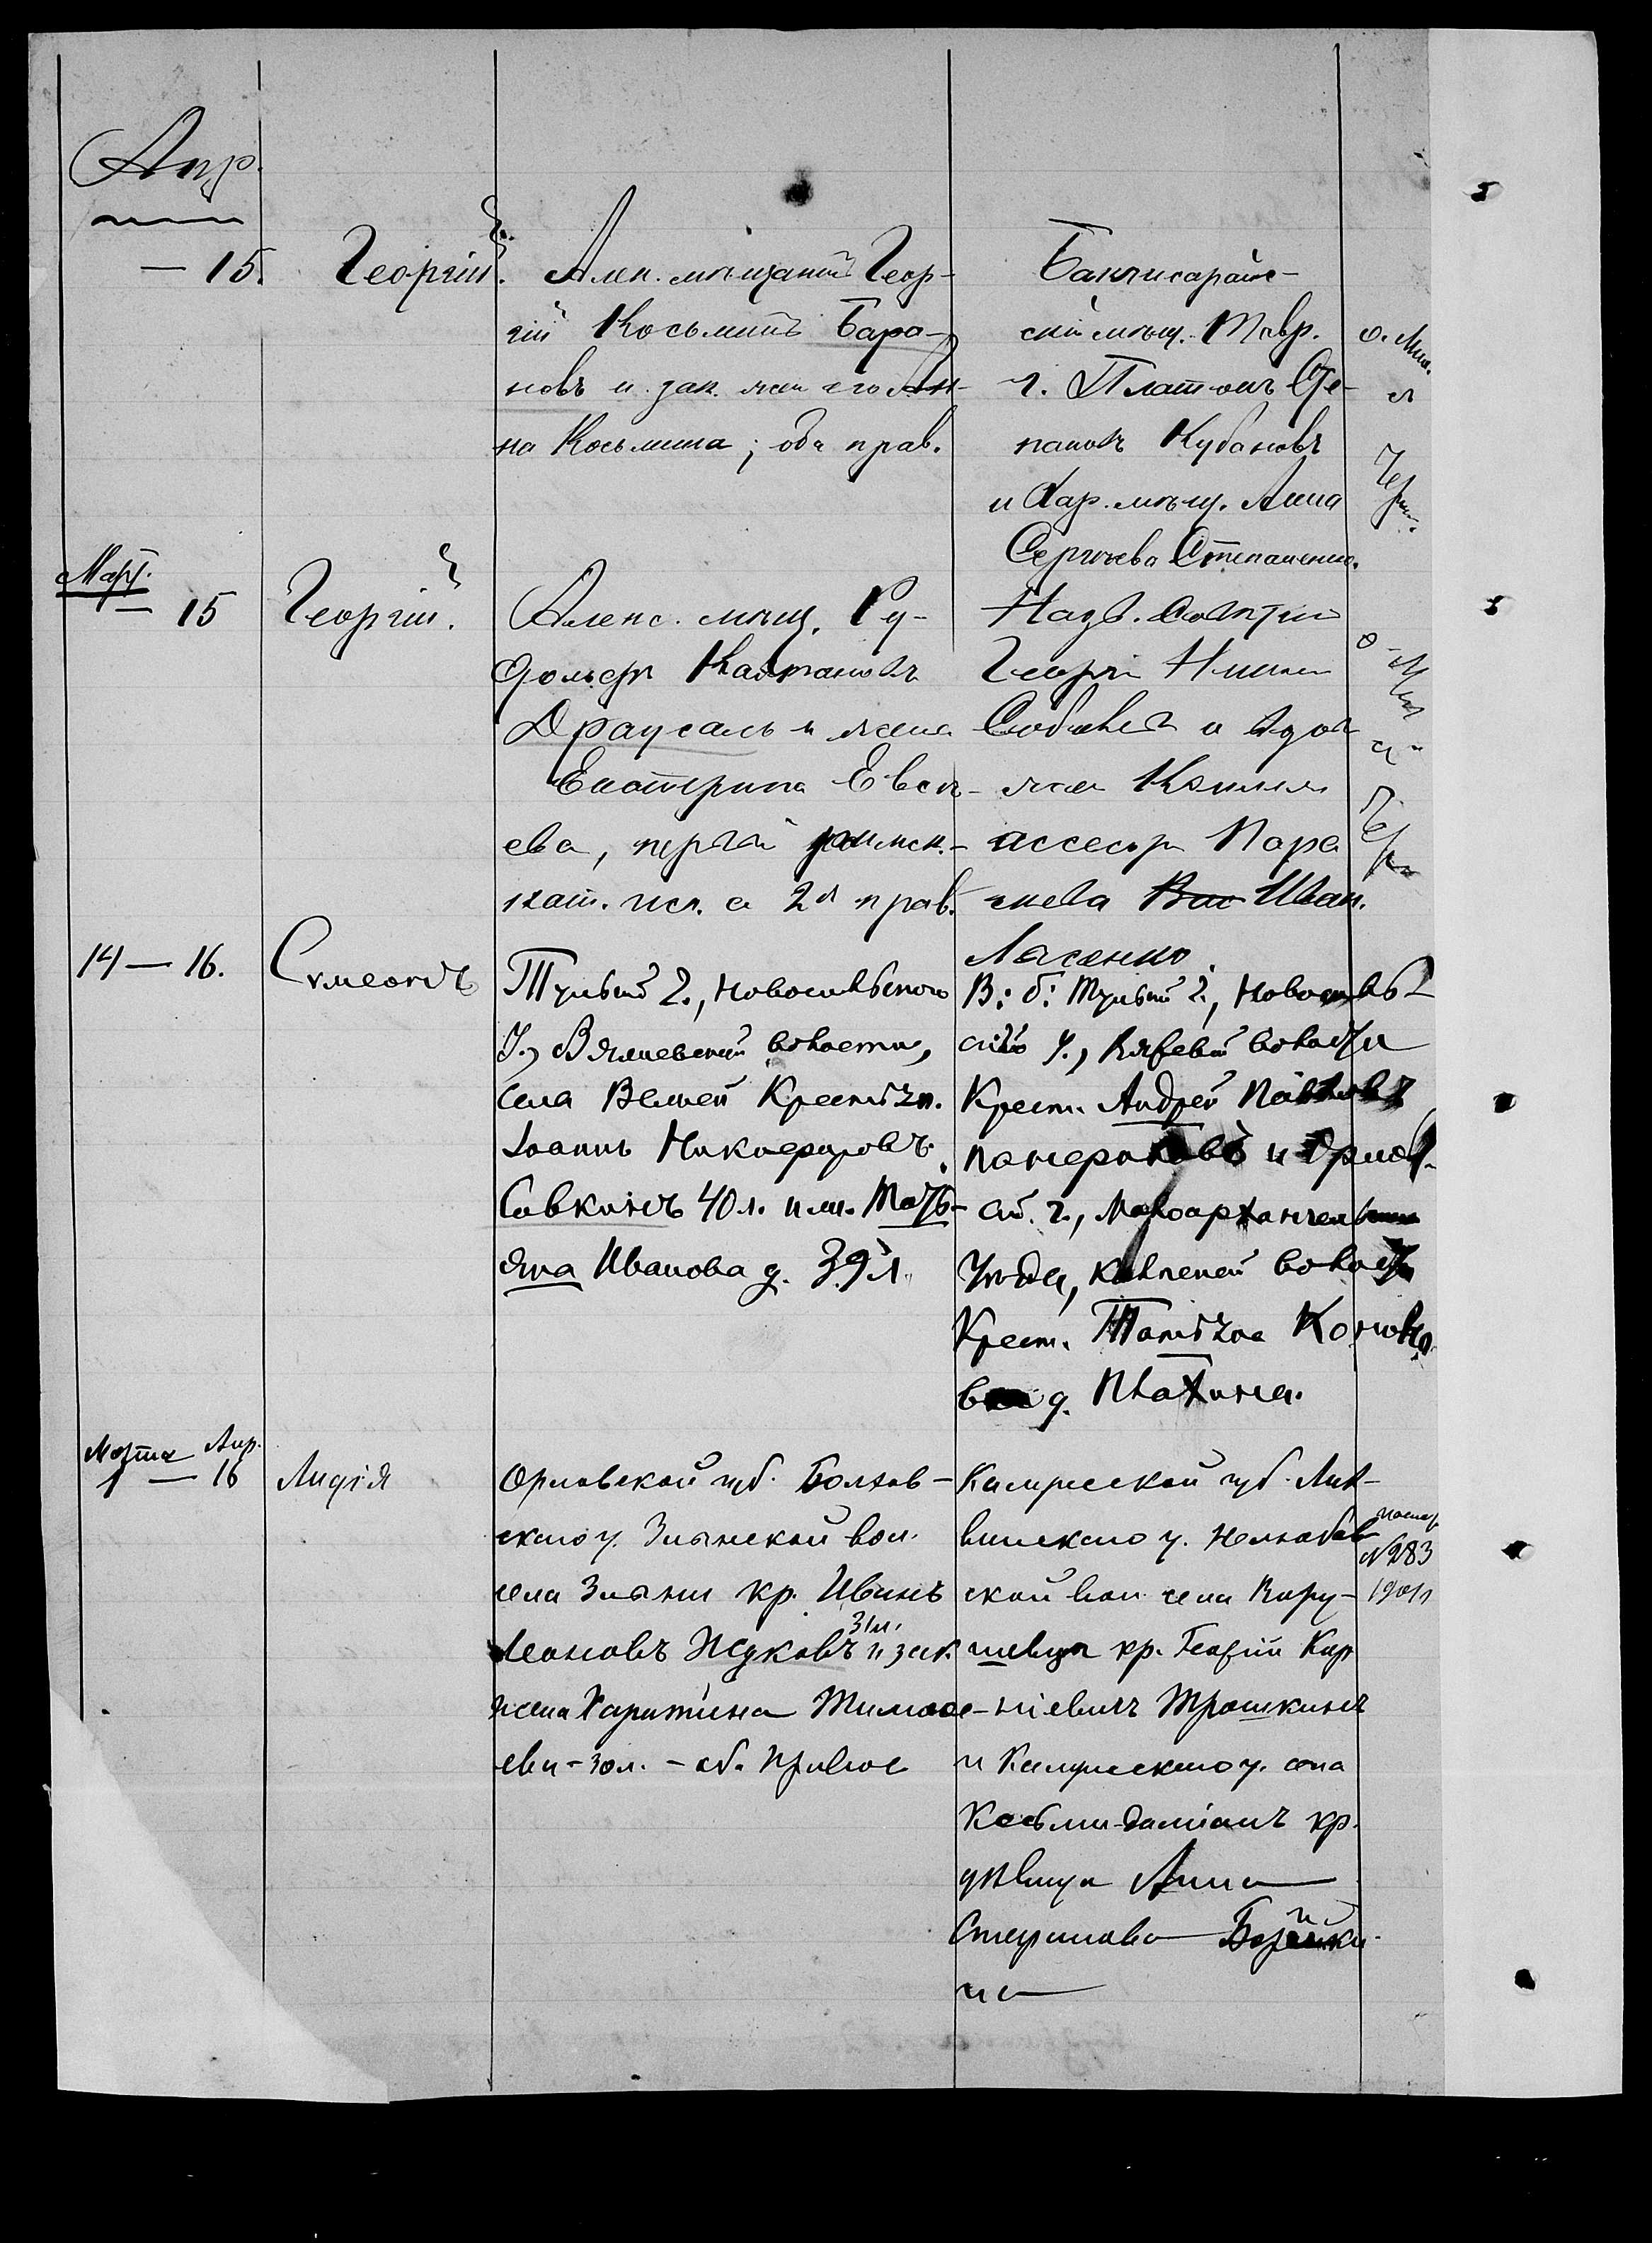 Апр.
— 15.
Георгій.
Алек. мѣщанинъ Геор-
гій Косьминъ Бара-
новъ и зак. жена его Ан-
на Косьмина; оба прав.
Бахчисарайс-
скій мѣщ. Тавр.
г. Платонъ Сте-
пановъ Кубановъ
и Хар. мѣщ. Анна
Сергѣева Степаненко.
Март.
— 15
Георгій.
Алекс. мѣщ. Ру-
дольфъ Каэтановъ
Драугаль и жена
Екатерина Евсѣ-
ева, первый римск.-
кат. исп. а 2я прав.
Надв. Совѣтник
Георгій
и вдова
жена Коллеж.
ассесора Пара
скева Вас Иван.
Лясенко.
14 — 16.
Сѵмеонъ
Тульской г., Новосильскаго
у., Вяжевской волости,
села Вежей Крестьян.
Іоаннъ Никифоровъ
Савкинъ 40 л. и ж. Тать-
яна Иванова д. 39 л.
В: б: Тульской г., Новосиль-
скаго у., Вяжевой волости
Крест. Андрей Павловъ
и Орлов-
ской г., Малоархангельскаго
Уѣзда, волости
Крест. Татьяна
д. Плахина.
Марта Апр.
1 — 16
Лидія
Орловской губ. Болхов-
скаго у. Злынской вол.
села Злыни кр. Иванъ
31 л.
Леоновъ Жуковъ и зак.
жена Харитина Тимофе-
ева - 30 л. - об. правос
Калужской губ. Лих-
винскаго у.
ской вол. села
кр. Георгій Кар
ніевичъ Трошкинъ
и Калужскаго у. села
Косьмы-Даміанъ кр.
дѣвица Анна
Стефанова
на
№ 283
1901